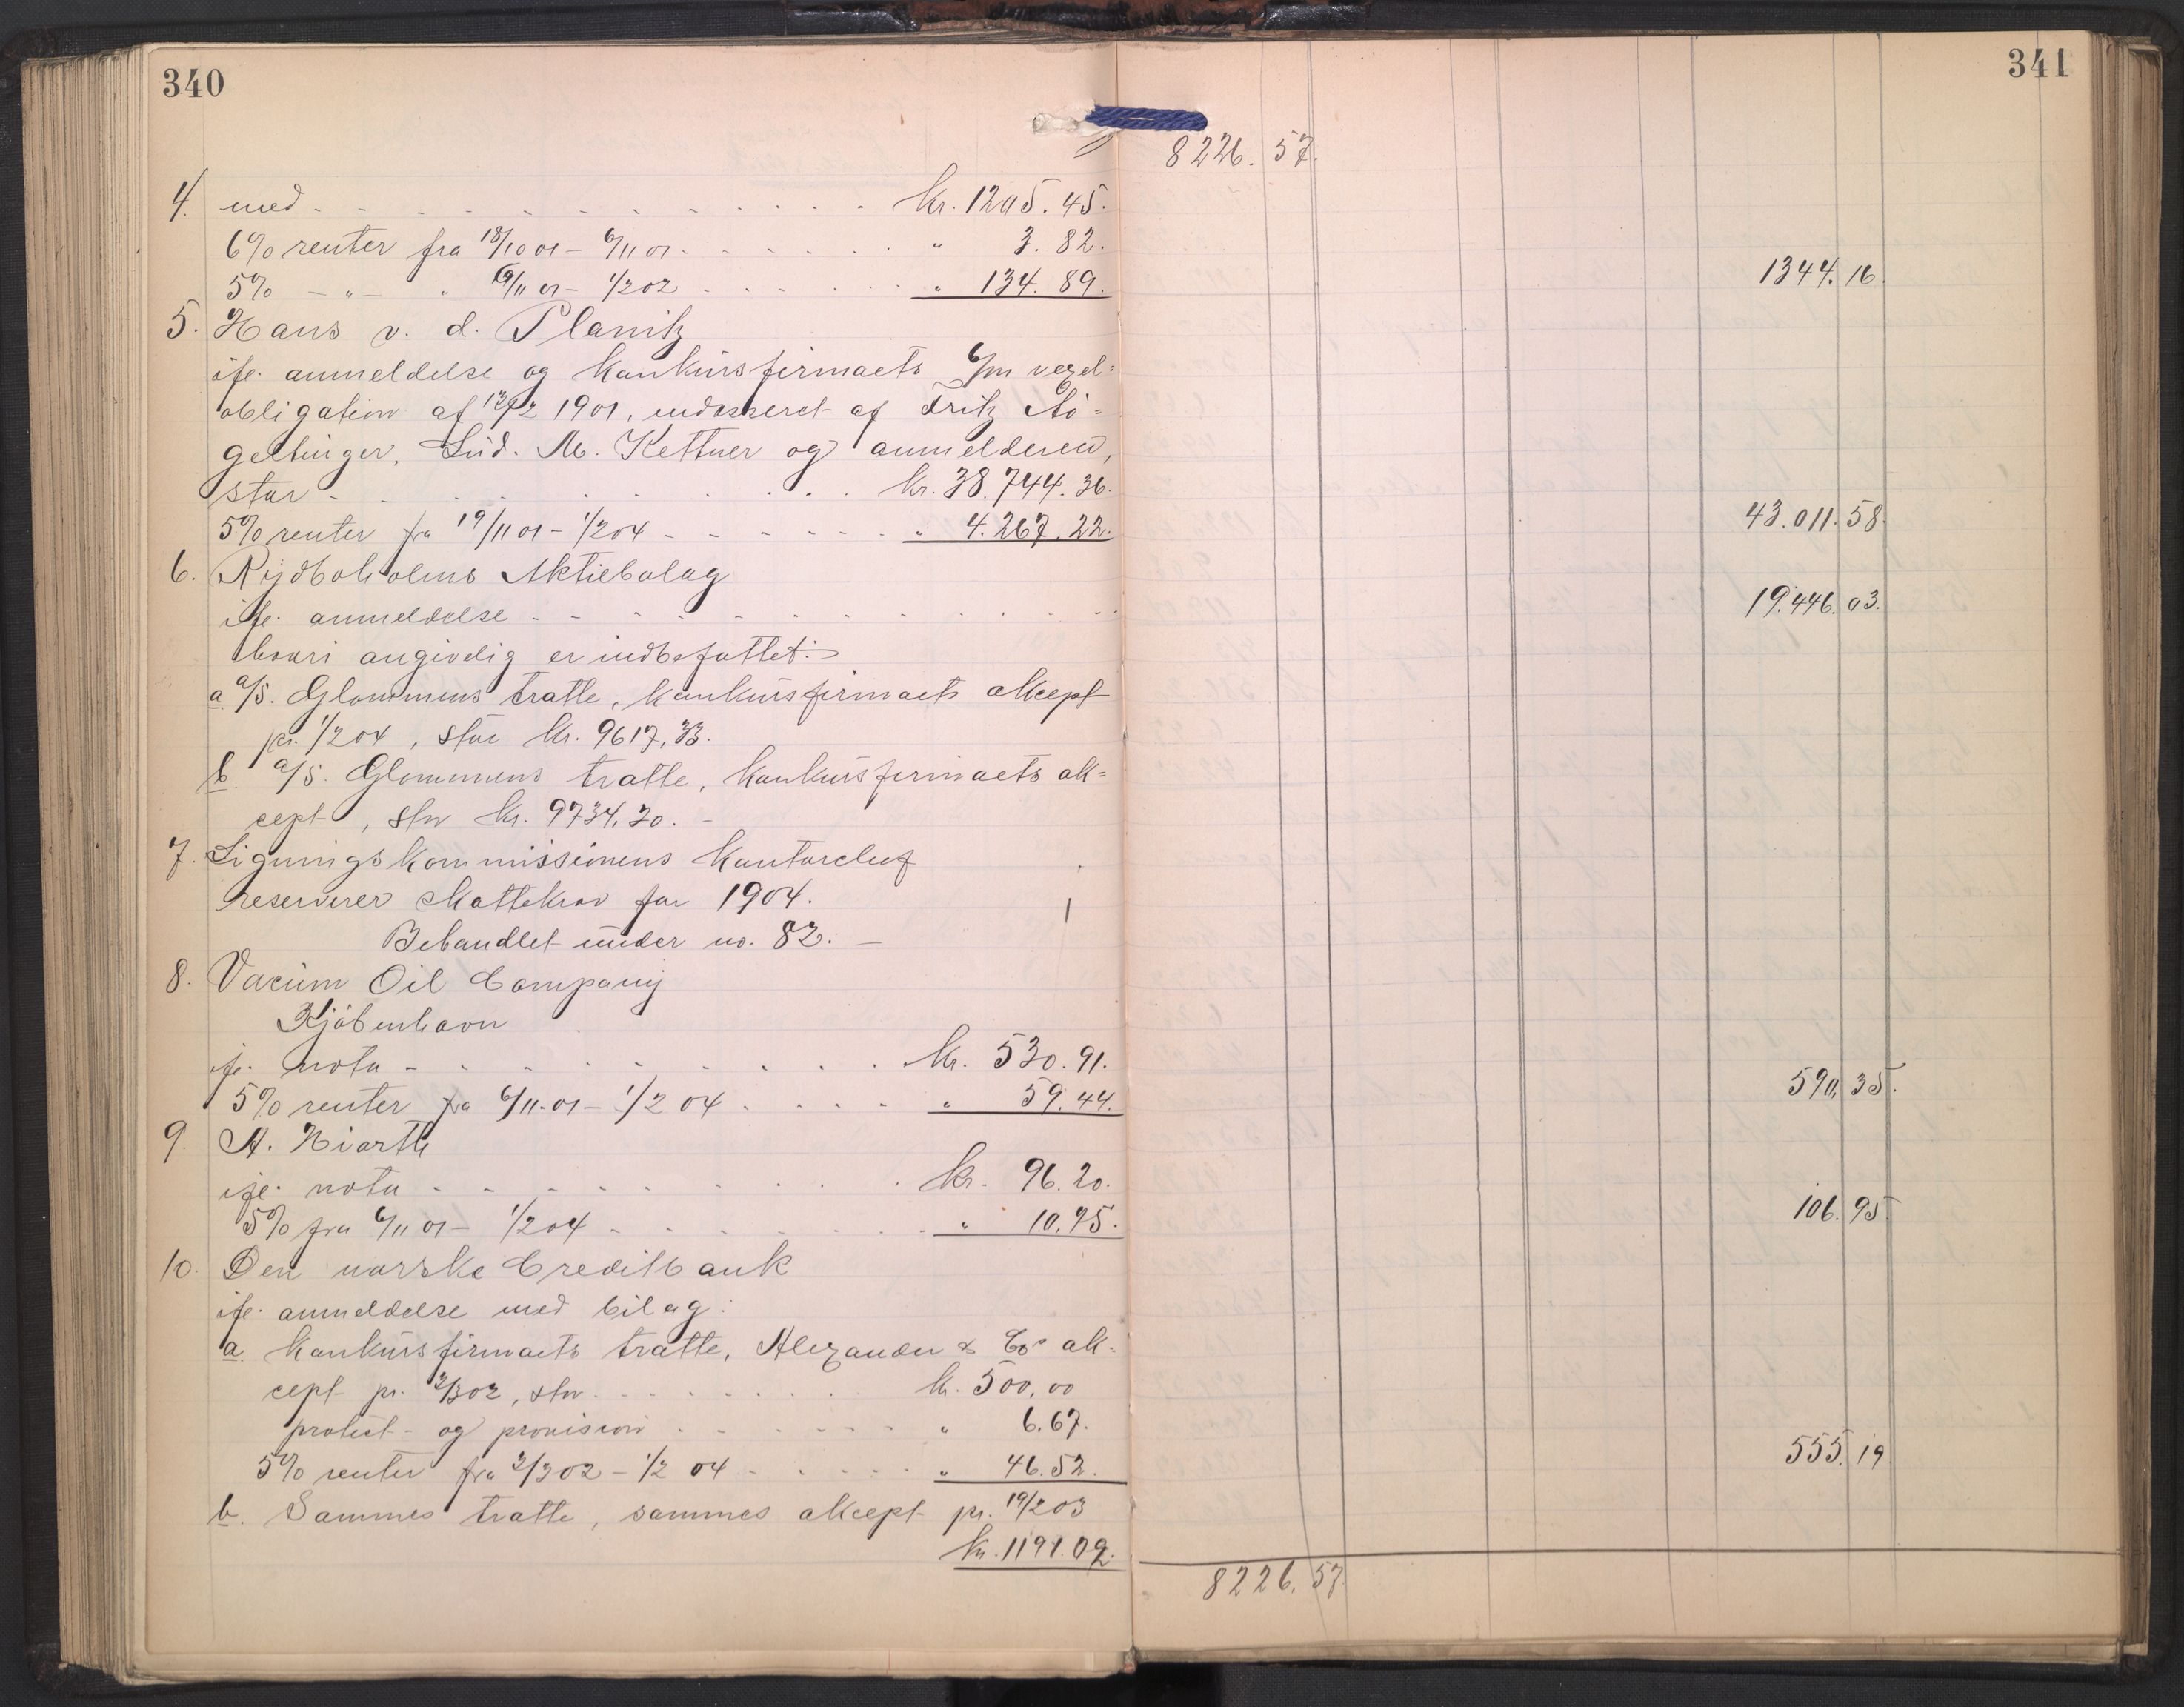 340
341
8226. 57.
4. med - - - kr. 1205. 45.
6% renter fra 18/10 01 - 6/11 01 - - - " 3. 82.
5% - " - " 6/11 01 - 1/2 02 - - - " 134. 89. 1344. 16.
5. Hans v. d. Planitz
ifl. anmeldelse og konkursfirmaets 6/m vexel=
obligation af 19/2 1901, endosseret af Fritz
geltinger, Lud. M. Kettner og anmelderen,
stor - - - kr. 38.744. 36.
5% renter fra 19/11 01 - 1/2 04 - - - " 4.267. 22. 43.011. 58.
6. Rydboholms Aktiebolag
ifl. anmeldelse - - - 19.446. 03.
hvori angivelig er indbefattet:
a a/s. Glommens tratte, konkursfirmaets akcept
pr. 1/2 04, stor kr. 9617,33.
b a/s. Glommens tratte, konkursfirmaets ak=
cept, stor kr. 9734,20. -
7. Ligningskommissionens kontorchef
reserverer skattekrav for 1904.
Behandlet under no. 82. -
8. Vacuum Oil Company
Kjøbenhavn
ifl. nota - - - kr. 530. 91.
5% renter fra 6/11. 01 - 1/2 04 - - - " 59. 44. 590. 35.
9. A. Hiorth
ifl. nota - - - kr. 96. 20.
5% fra 6/11 01 - 1/2 04 - - - " 10. 75. 106. 95.
10. Den norske Creditbank
ifl. anmeldelse med bilag:
a konkursfirmaets tratte, Alexander & Co ak=
cept pr. 2/3 02, stor - - - kr. 500,00
protest- og provision - - - " 6. 67.
5% renter fra 2/3 02 - 1/2 04 - - - " 46. 52. 555. 19
b. Sammes tratte, sammes akcept pr. 19/2 03
kr. 1191. 09.
8226. 57.